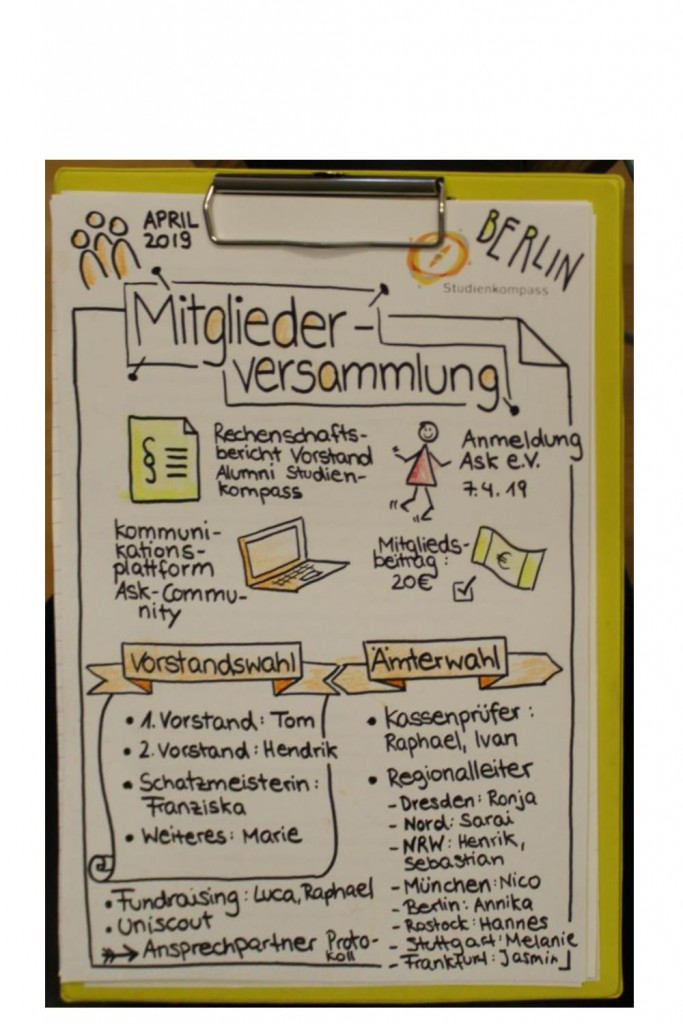 APRIL
2019
BERLIN
Studienkompass
Mitglieder-
versammlung
§
Rechenschafts-
bericht Vorstand
Alumni Studien-
kompass
Anmeldung
Ask e.V.
7.4.19
Kommuni-
kations-
plattform
Ask-Commu-
nity
Mitglieds-
beitrag:
20€
€
Vorstandswahl
• 1. Vorstand: Tom
• 2. Vorstand: Hendrik
• Schatzmeisterin:
Franziska
• Weiteres: Marie
• Fundraising: Luca, Raphael
• Uniscout
Ansprechpartner Proto-
koll
Ämterwahl
• Kassenprüfer:
Raphael, Ivan
• Regionalleiter
- Dresden: Ronja
- Nord: Sarai
- NRW: Henrik,
Sebastian
- München: Nico
- Berlin: Annika
- Rostock: Hannes
- Stuttgart: Melanie
- Frankfurt: Jasmin